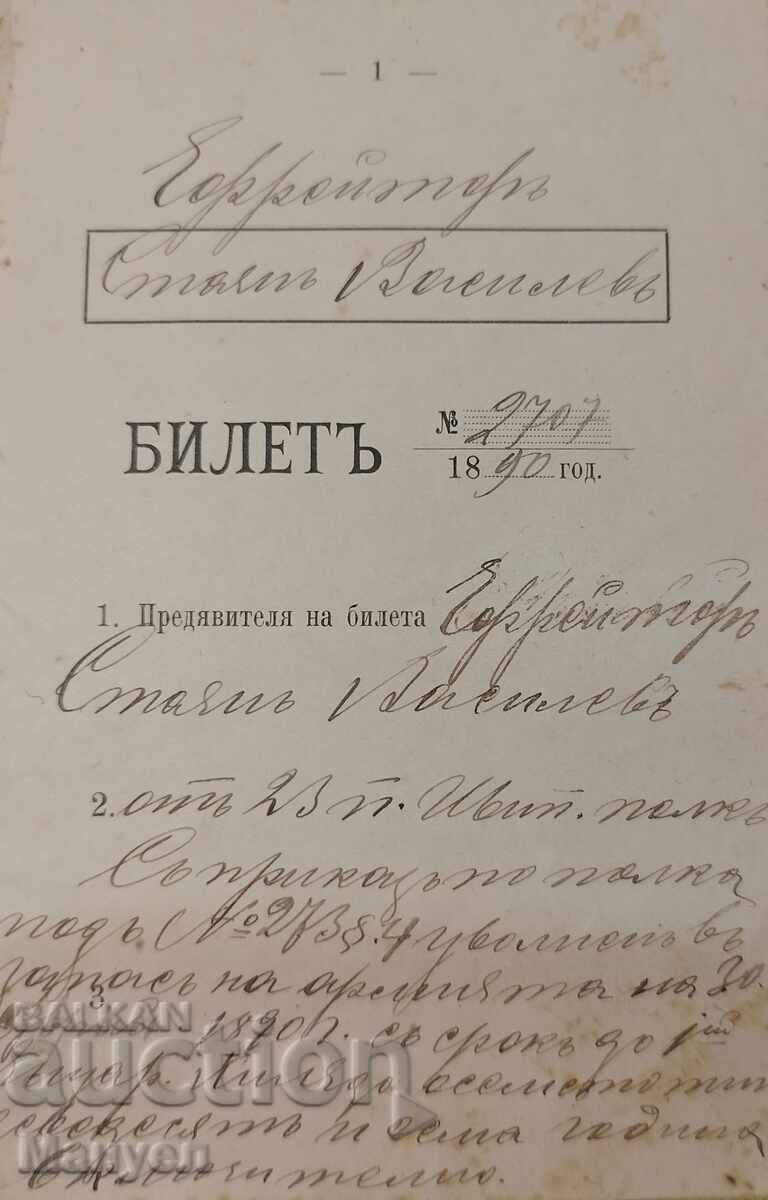 — 1 —
Ефрейторъ
Стоянъ Василевъ
БИЛЕТЪ № 2707
1890 год.
1. Предявителя на билета Ефрейторъ
Стоянъ Василевъ
2. отъ 23 п. Шип. полкъ
Съ приказъ по полка
подъ № 273 §. 4 уволненъ въ
запасъ на армията на 30
3
1890 г. съ срокъ до 1ий
Януар. Хиляда осемстотинъ
и осма година
включително.
BALKAN
auction
Mariyen